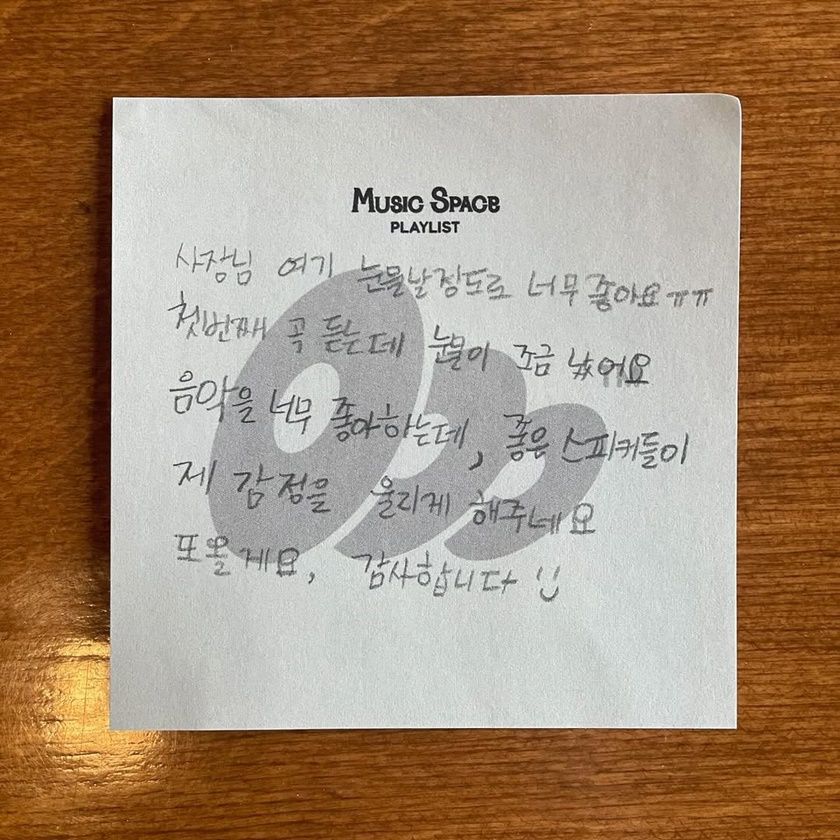 MUSIC SPACE
PLAYLIST
사장님 여기 눈물날정도로 너무좋아요ㅠㅠ
첫번째 곡 듣는데 눈물이 조금 났어요
음악을 너무 좋아하는데, 좋은 스피커들이
제 감정을 울리게 해주네요
또올게요, 감사합니다 :)